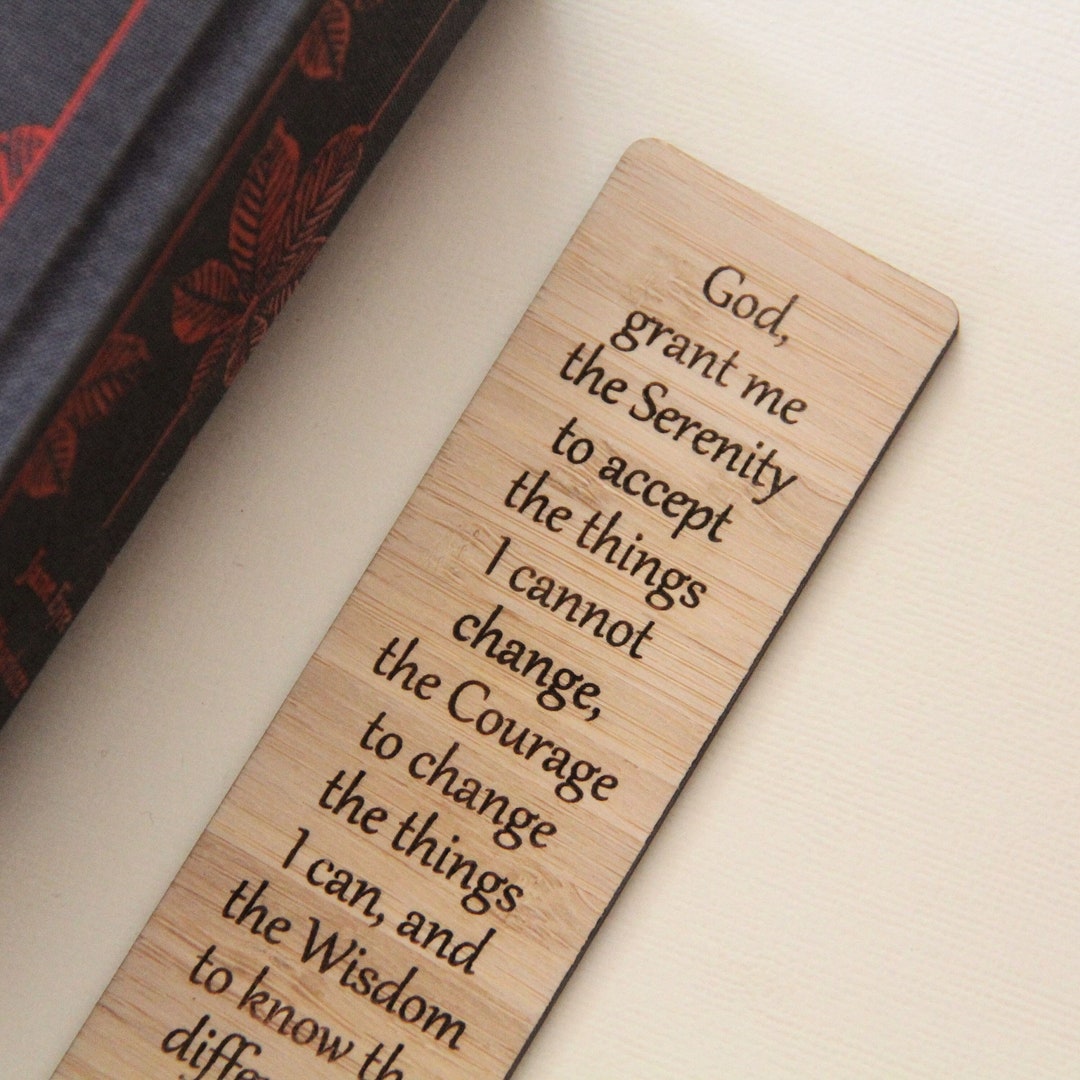 God,
grant me
the Serenity
to accept
the things
I cannot
change,
the Courage
to change
the things
I can, and
the Wisdom
to know